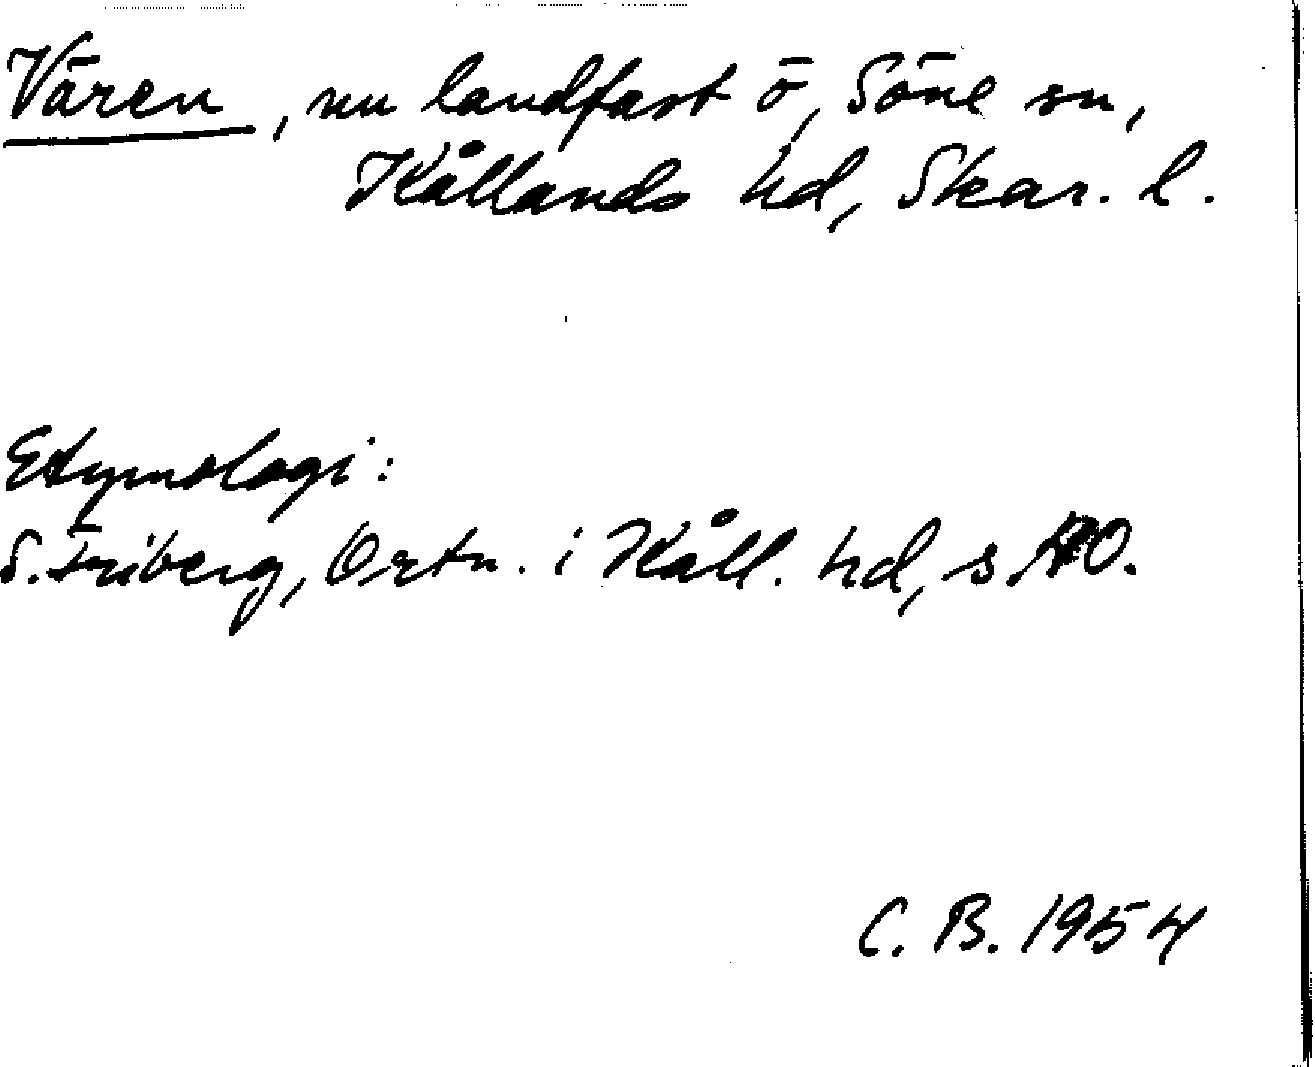 Vären, nu landfast ö, Söne sn,
Kållands hd, Skar. l.
Etymologi:
S. Friberg, Ortn. i Kåll. hd, s.
C. B. 1954